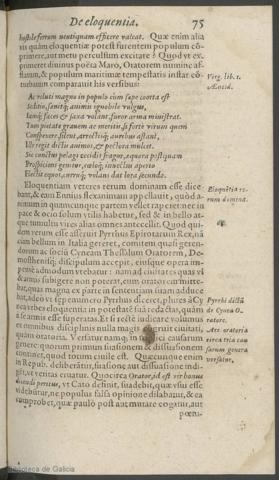 De eloquentia. 75
hostile ferrum nunquam efficere valeat. Quæ enim alia
vis quàm eloquentiæ potest furentem populum cō-
primere, aut metu perculsum excitare? Quod vt ex-
primeret divinus poëta Maro, Oratorem numine af-
flatum, & populum maritimæ tempestatis instar cō-
turbatum comparauit his versibus:
Virg. lib. 1.
Æneid.
Ac veluti magno in populo cùm sæpe coorta est
Seditio, sæuitq́; animis ignobile vulgus,
Iamq́; faces & saxa volant, furor arma ministrat.
Tum pietate grauem ac meritis, si fortè virum quem
Conspexere, silent, arrectisq́; auribus astant,
Ille regit dictis animos, & pectora mulcet.
Sic cunctus pelagi cecidit fragor, æquora postquam
Prospiciens genitor, cœloq́; inuectus aperto
Flectit equos, curruq́; volans dat lora secundo.
Eloquentiam veteres rerum dominam esse dice-
bant, & eam Ennius flexanimam appellauit, quòd a-
nimum in quamcunque partem vellet raperet nec in
pace & ocio solum vtilis habetur, sed & in bello at-
que tumultu vires alias omnes antecellit. Quod qui-
dem rerum esse asseruit Pyrrhus Epirotarum Rex, nã
cùm bellum in Italia gereret, comitem quasi geren-
dorum ac sociũ Cyneam Thessalum Oratorem, De-
mosthenisq́; discipulum accepit, eiusque opera im-
Eloquētia re-
rum domina.
pensè admodum vtebatur: nam ad ciuitates quas vi
& armis subigere non poterat, eum orator emitte-
bat, quas magna ex parte in sententiam suam adduce-
bat, adeo vt sępenumero Pyrrhus diceret, plures à Cy
nea vrbes eloquentia in potestatē suã redactas, quàm
à se armis esse superatas. Et si rectè iudicare volumus
ex omnibus disciplinis nulla magis inseruit ciuitati,
quàm oratoria. Versatur namq́; in triplici causarum
genere: quorum primum suasionem & dissuasionem
continet, quod totum ciuile est. Quæcunque enim
in Repub. deliberãtur, suasione aut dissuasione indi-
get, vt veritas eruatur. Quocirca Orator, id est vir bonus
dicendi peritus, vt Cato definit, suadebit, quæ vsui esse
videbitur, ne populus falsa opinione dilabatur, & ea
comprobet, quæ paulò pòst aut mutare cogatur, aut
Pyrrhi dictũ
de Cynea O-
ratore.
Ars oratoria
circa tria cau
sarum genera
versatur.
pœni-
Biblioteca de Galicia